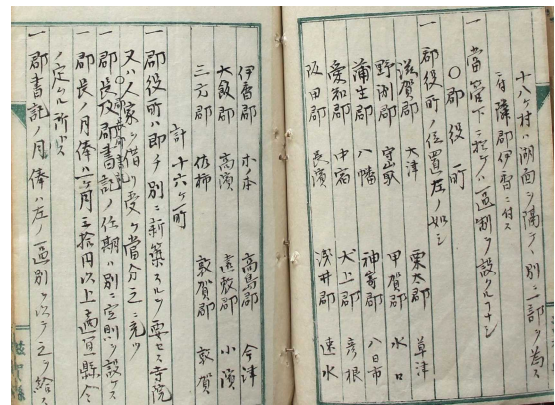 十八ケ村ハ湖面ヲ隔テ、別ニ一部ヲ為ス
ニ付隣郡伊香ニ付ス
一當管下ニ於テハ區制ヲ設クルコナシ
○郡役所
一郡役所ノ位置左ノ如シ
滋賀郡 大津 栗太郡 草津
野洲郡 守山 甲賀郡 水口
蒲生郡 八幡 神崎郡 八日市
愛知郡 中宿 犬上郡 彦根
坂田郡 長濱 淺井郡 速水
伊香郡 木ノ本 高島郡 今津
大飯郡 高濱 遠敷郡 小濱
三方郡 佐柿 敦賀郡 敦賀
計 十六ケ町
一郡役所ハ即チ別ニ新築スルヲ要セス寺院
又ハ人家ヲ借リ受ケ當分之ニ充ツ
一郡長及郡書記ノ任期ハ別ニ定則ヲ設ケス
一郡長ノ月俸ハ一ケ月三拾円以上適宜縣令
ノ定ムル所ニ
一郡書記ノ月俸ハ左ノ區別ヲ以テ之ヲ給ス
滋賀縣